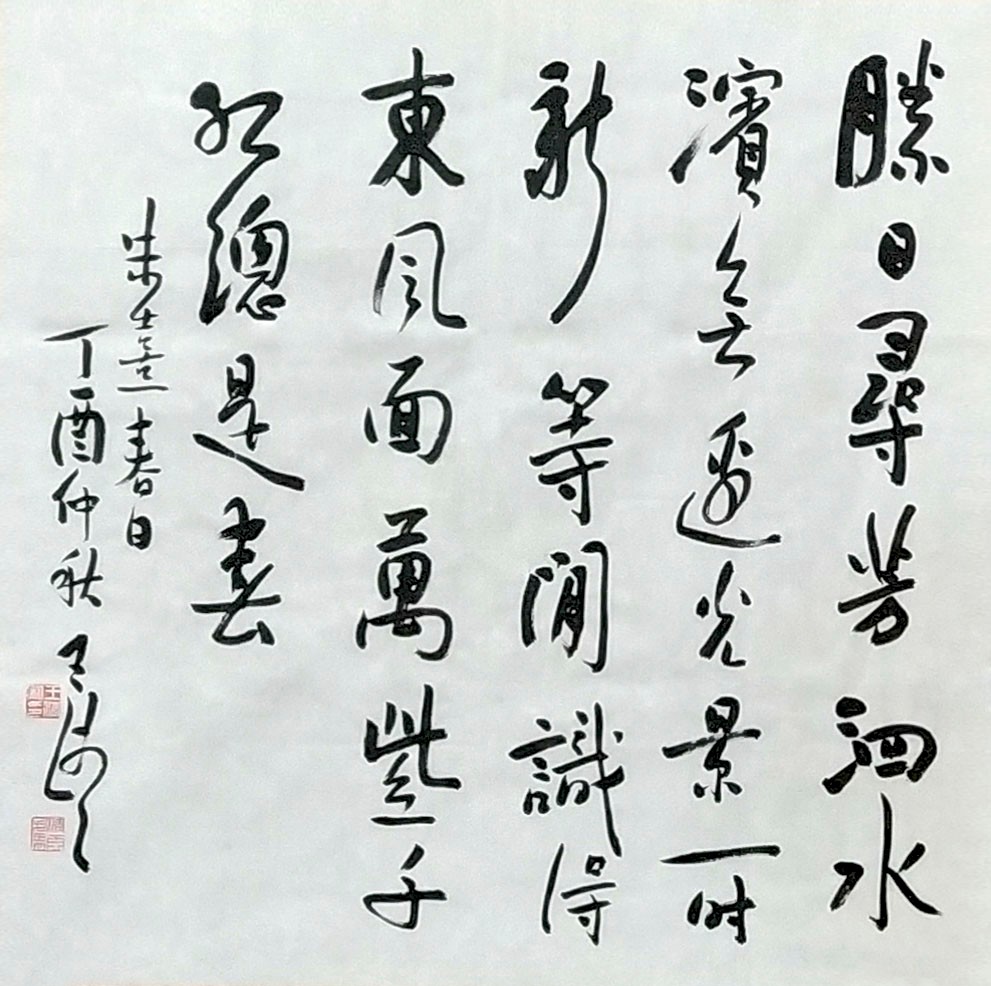 勝日尋芳泗水
濱無邊光景一时
新等閒識得
東風面萬紫千
紅總是春
朱熹春日
丁酉仲秋